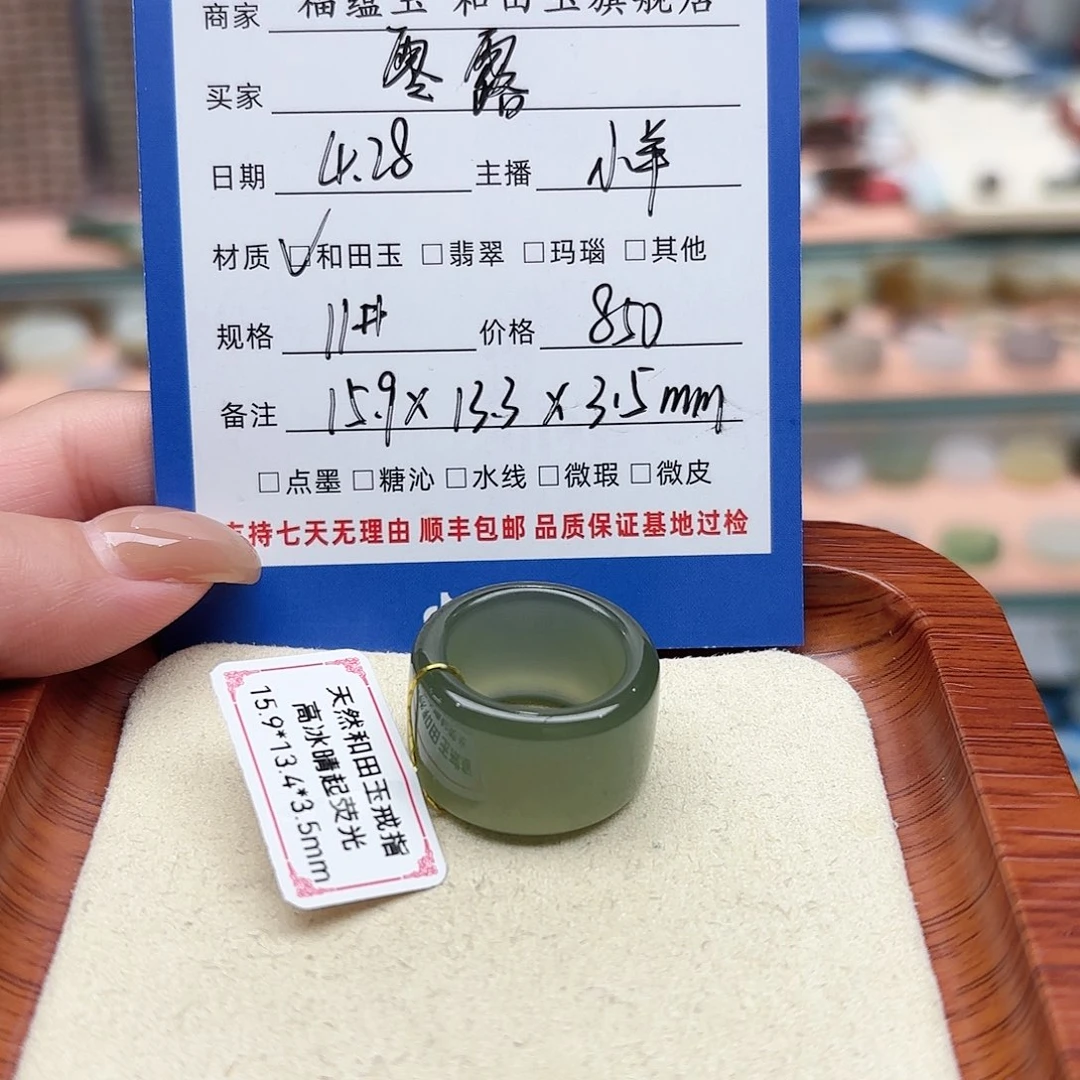 商家 福蕴玉 和田玉旗舰店
买家
日期 4.28 主播 小羊
材质 ☑和田玉 □翡翠 □玛瑙 □其他
规格 11# 价格 850
备注 15.9x 13.3 x 3.5mm
□点墨 □糖沁 □水线 □微瑕 □微皮
支持七天无理由 顺丰包邮 品质保证基地过检
天然和田玉戒指
高冰晴起荧光
15.9*13.4*3.5mm